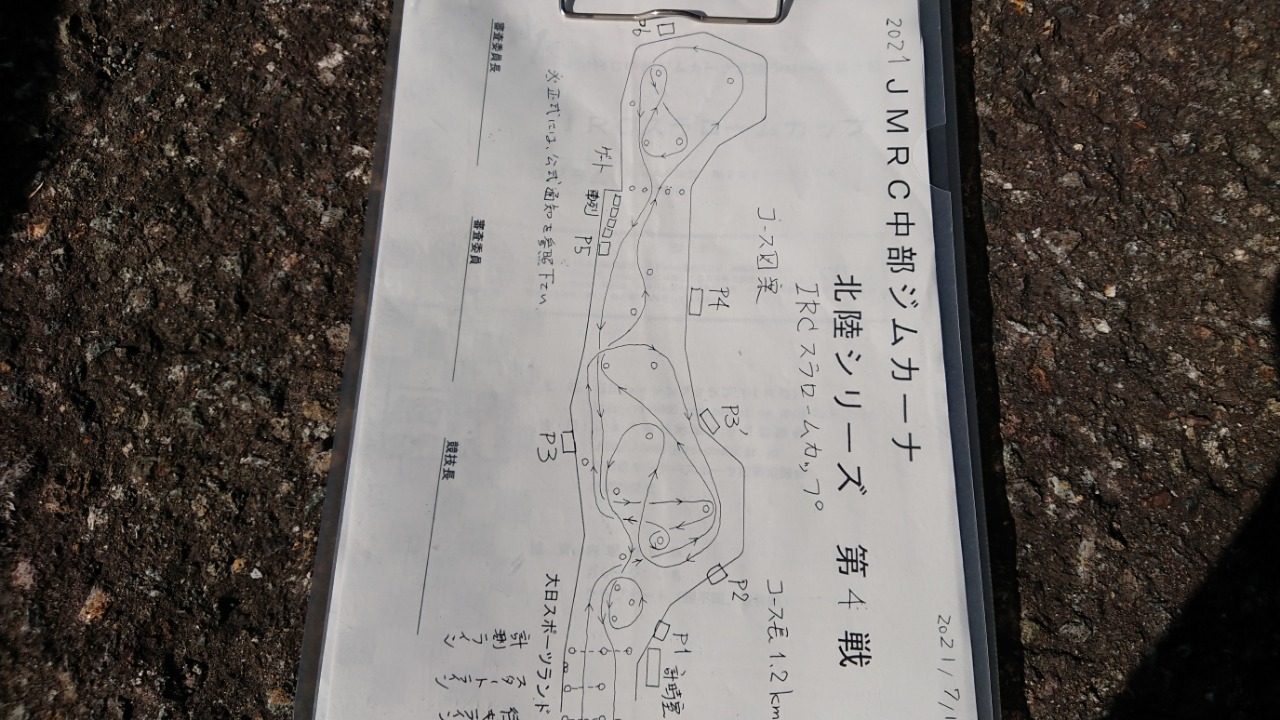 2021 JMRC中部ジムカーナ
北陸シリーズ 第4戦
2021/7/1
IRCスラロームカップ
コース図案
コース長1.2km
P6
ゲート
車列
P5
P4
P3'
P3
P2
P1
計時室
※正式には、公式通知を参照下さい、
大日スポーツランド
計測ライン
スタートライン
審査委員長
審査委員
競技長